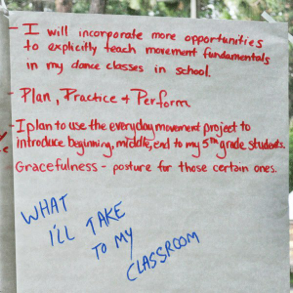 - I will incorporate more opportunities
to explicitly teach movement fundamentals
in my dance classes in school.
- Plan, Practice + Perform
- I plan to use the everyday movement project to
introduce beginning, middle, end to my 5th grade students.
Gracefulness - posture for those certain ones.
WHAT
I'LL TAKE
TO MY
CLASSROOM